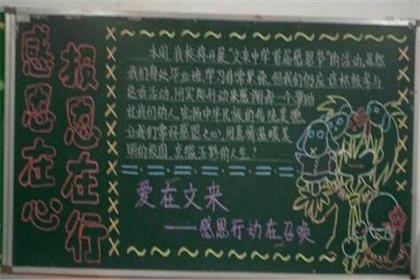 感恩在心
报恩在行
本周，我校将开展“文来中学首届感恩节”的活动。虽然
我们身处毕业班，学习非常紧张，但我们仍应该积极参与
这次活动，用实际行动来感谢每一个帮助
过我们的人，发扬中华民族的传统美德。
让我们常怀感恩之心，用真情温暖美
丽的校园，点缀玉野的人生！
爱在文来
——感恩行动在召唤